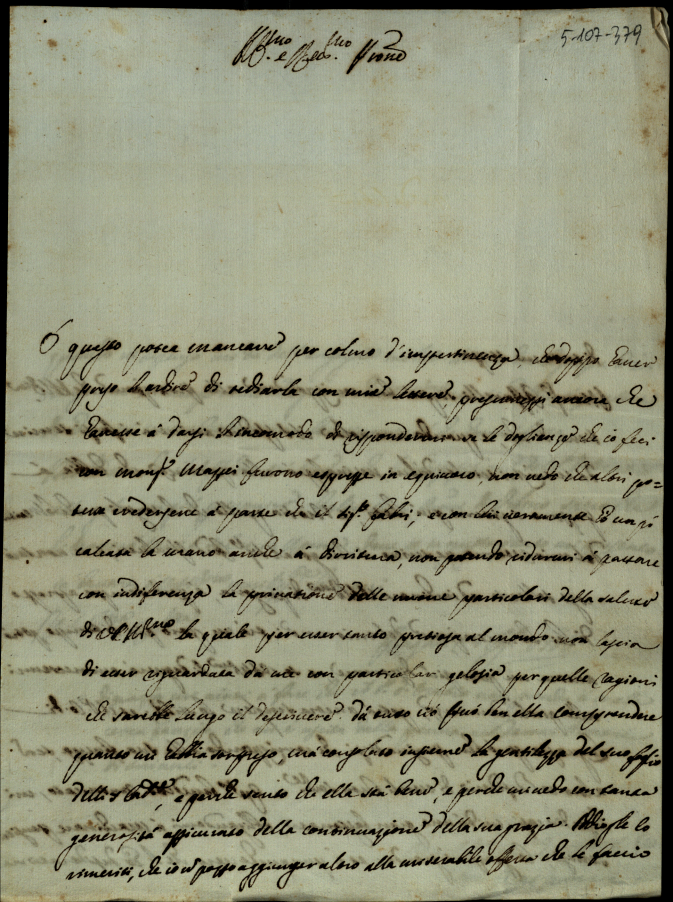 5-107-379
Ill.mo e Rev.mo Sig.re
È questo potea mancare per colmo d'impertinenza, che doppo hauer
preso l'ardire di tediarla con mie lettere presumessi ancora che
hauesse à darsi l'incomodo di rispondermi se le doglianze che io feci
con Mons.r Massei furono espresse in equiuoco, non uedo che altri po=
tea credersene à parte che il Sig.r Fabri, e con lui ueramente hò un pò
calcata la mano anche à dirittura, non potendo ridurmi à
con indiferenza la priuatione delle nuoue particolari della salute
di V.S. Ill.ma la quale per esser tanto pretiosa al mondo non lascia
di esser riguardata da me con particolar gelosia per quelle ragioni
che sarebbe lungo il descriuere. Da tutto ciò può ben ella comprendere
quanto mi habbia sorpreso, mà consolato insieme la gentilezza del suo foglio
delli, e perche sento che ella stà bene, e perche mi uedo con tanta
generosità assicurato della continuazione della sua grazia. Iddio gle lo
rimeriti, che io nõ posso aggiunger altro alla miserabile offerta che le faccio